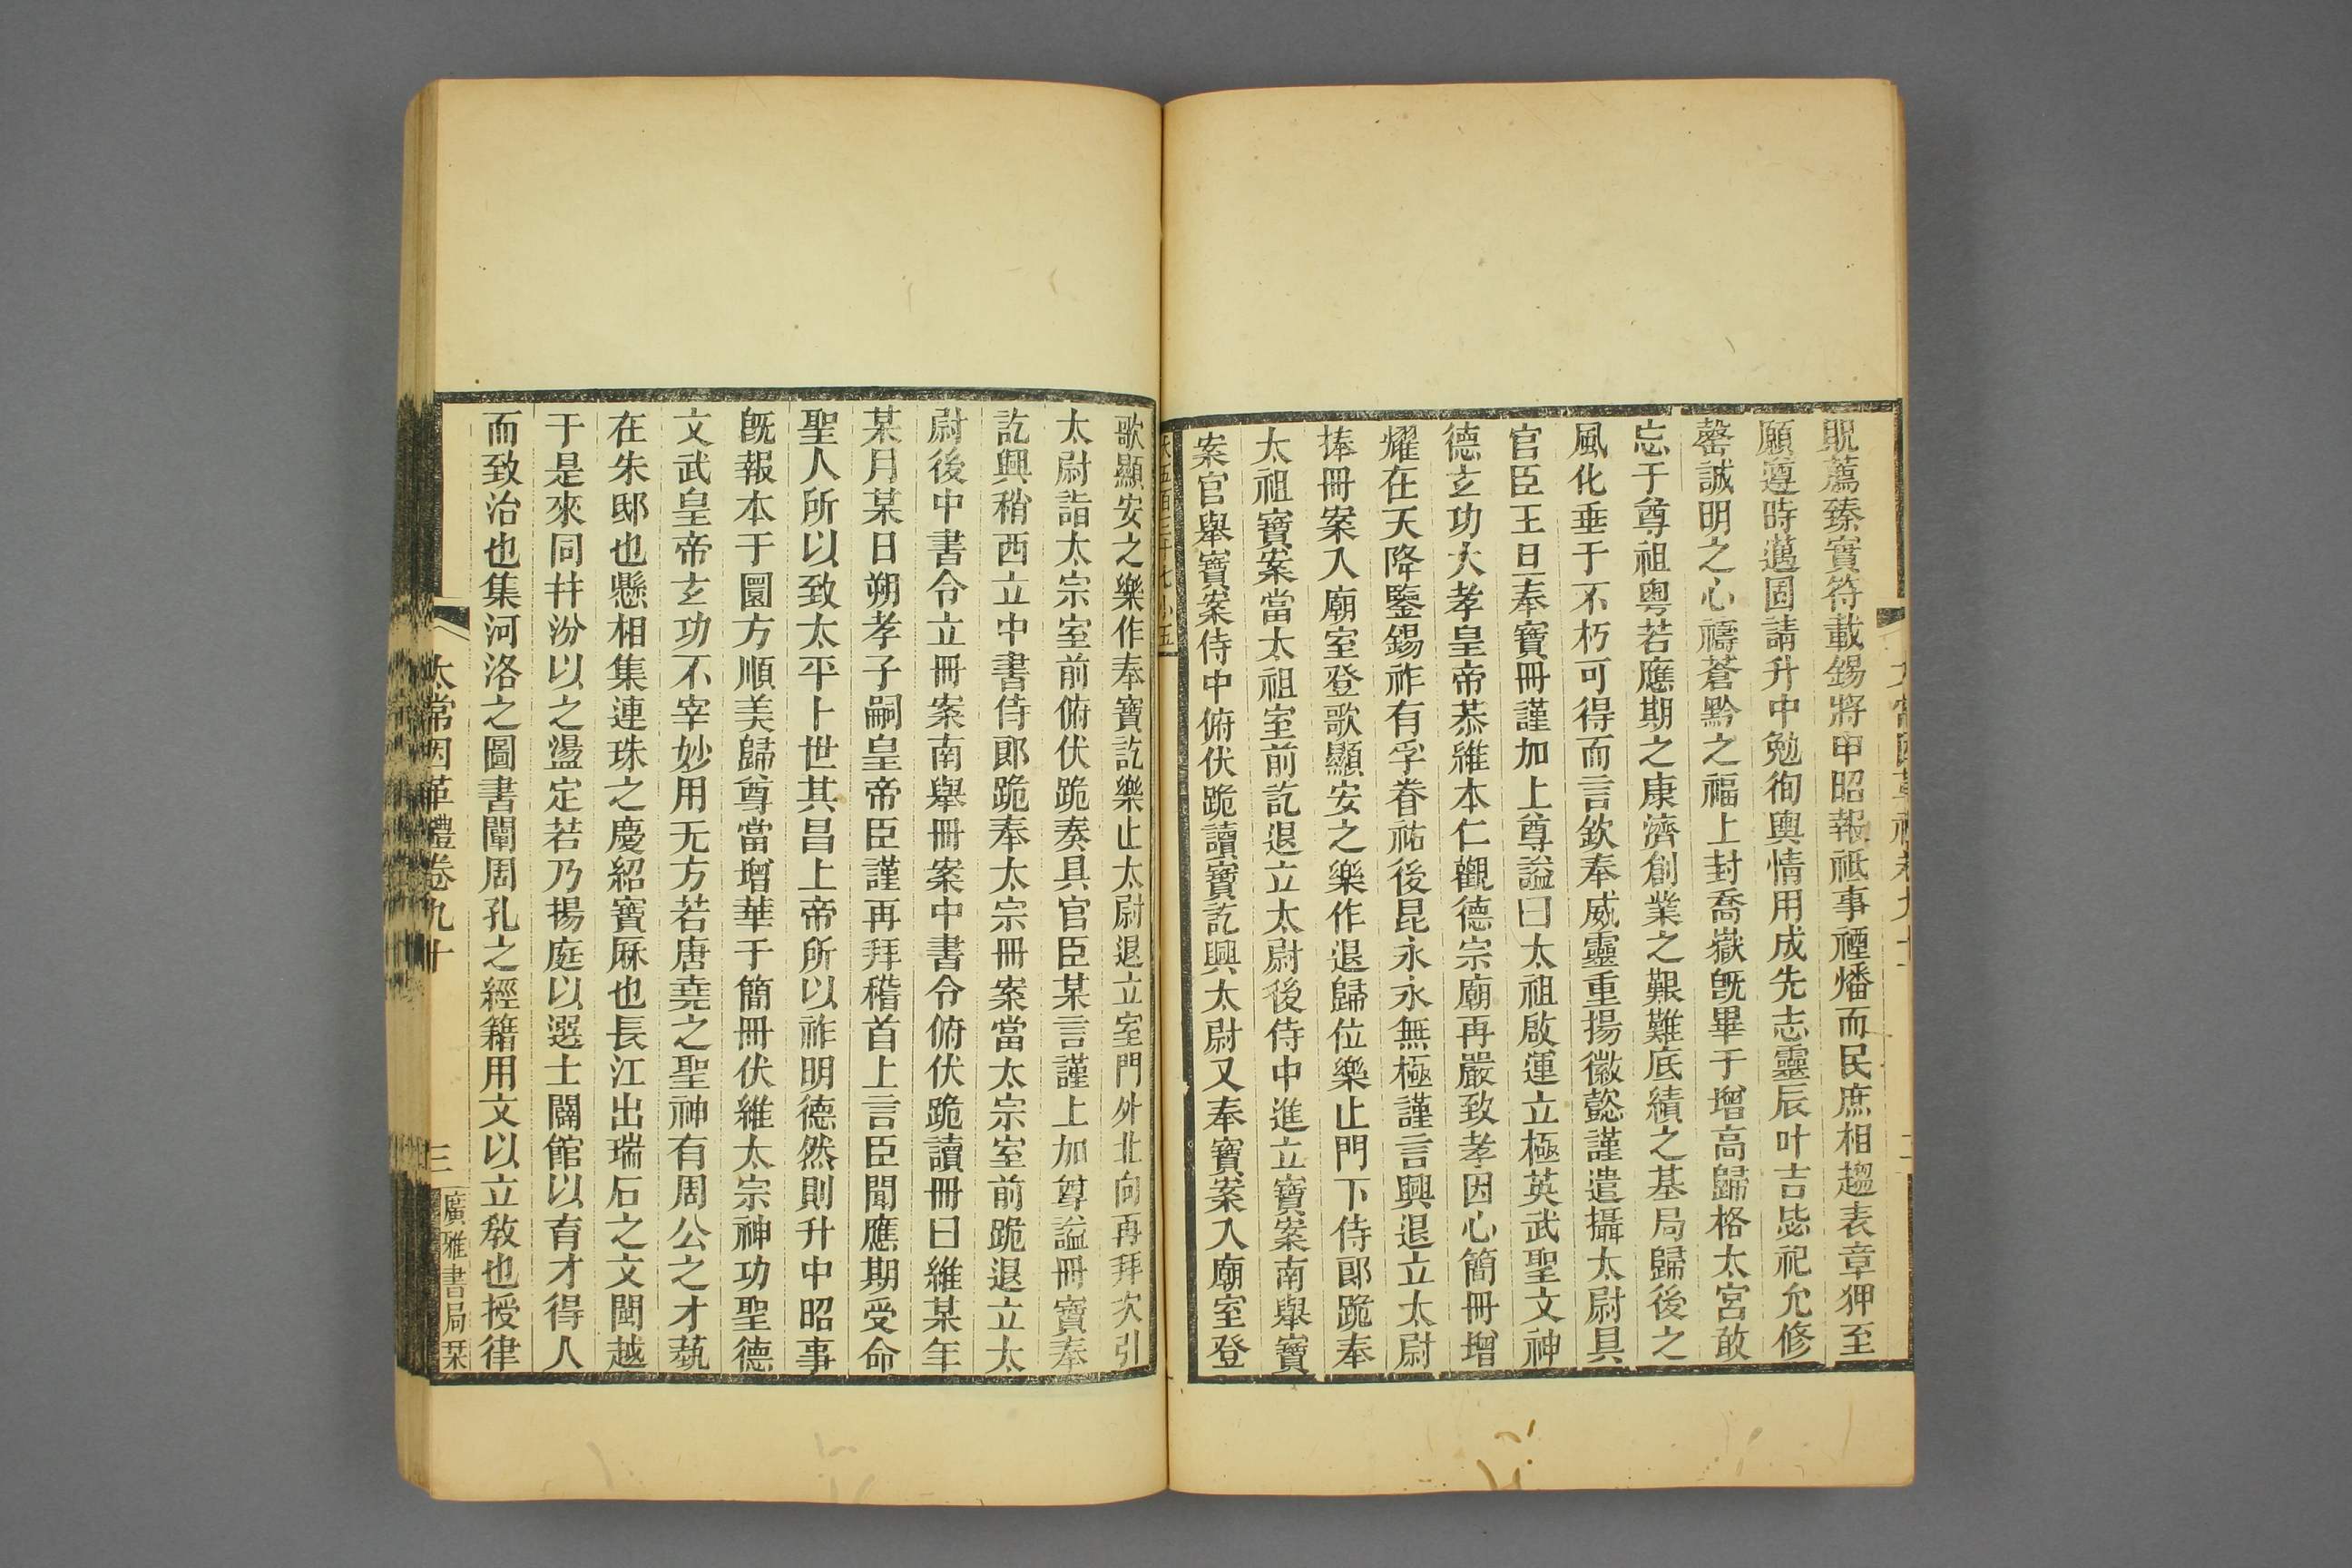 貺薦臻寶符載錫將申昭報祗事禋燔而民庶相趨表章狎至
願遵時邁固請升中勉徇輿情用成先志靈辰叶吉毖祀允修
罄誠明之心禱蒼黔之福上封喬嶽旣畢于增高歸格太宮敢
忘于尊祖粵若應期之康濟創業之艱難底績之基局歸後之
風化垂于不朽可得而言欽奉威靈重揚徽懿謹遣攝太尉具
官臣王旦奉寶冊謹加上尊謚曰太祖啟運立極英武聖文神
德玄功大孝皇帝恭維本仁觀德宗廟再嚴致孝因心簡冊增
耀在天降鑒錫祚有孚眷祐後昆永永無極謹言興退立太尉
捧冊案入廟室登歌顯安之樂作退歸位樂止門下侍郎跪奉
太祖寶案當太祖室前訖退立太尉後侍中進立寶案南舉寶
案官舉寶案侍中俯伏跪讀寶訖興太尉又奉寶案入廟室登
歌顯安之樂作奉寶訖樂止太尉退立室門外北向再拜次引
太尉詣太宗室前俯伏跪奏具官臣某言謹上加尊謚冊寶奉
訖興稍西立中書侍郎跪奉太宗冊案當太宗室前跪退立太
尉後中書令立冊案南舉冊案中書令俯伏跪讀冊曰維某年
某月某日朔孝子嗣皇帝臣謹再拜稽首上言臣聞應期受命
聖人所以致太平卜世其昌上帝所以祚明德然則升中昭事
旣報本于圜方順美歸尊當增華于簡冊伏維太宗神功聖德
文武皇帝玄功不宰妙用无方若唐堯之聖神有周公之才藝
在朱邸也懸相集連珠之慶紹寶厤也長江出瑞石之文閩越
于是來同幷汾以之盪定若乃揚庭以選士闢館以育才得人
而致治也集河洛之圖書闡周孔之經籍用文以立敎也授律
太常因革禮卷九十
三
廣雅書局栞